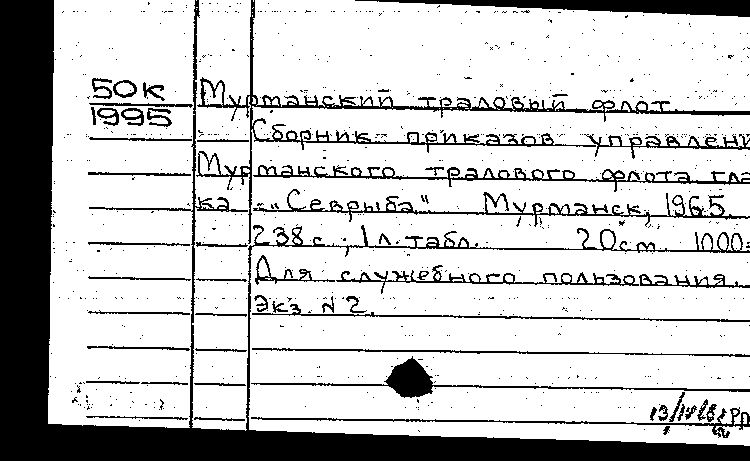 50К
1995
Мурманский траловый флот.
Сборник приказов управлени
Мурманского тралового флота гла
ка - "Севрыба" Мурманск, 1965.
238 с., 1 л. табл. 20 cm. 1000
Для служебного пользования.
Экз. N 2.